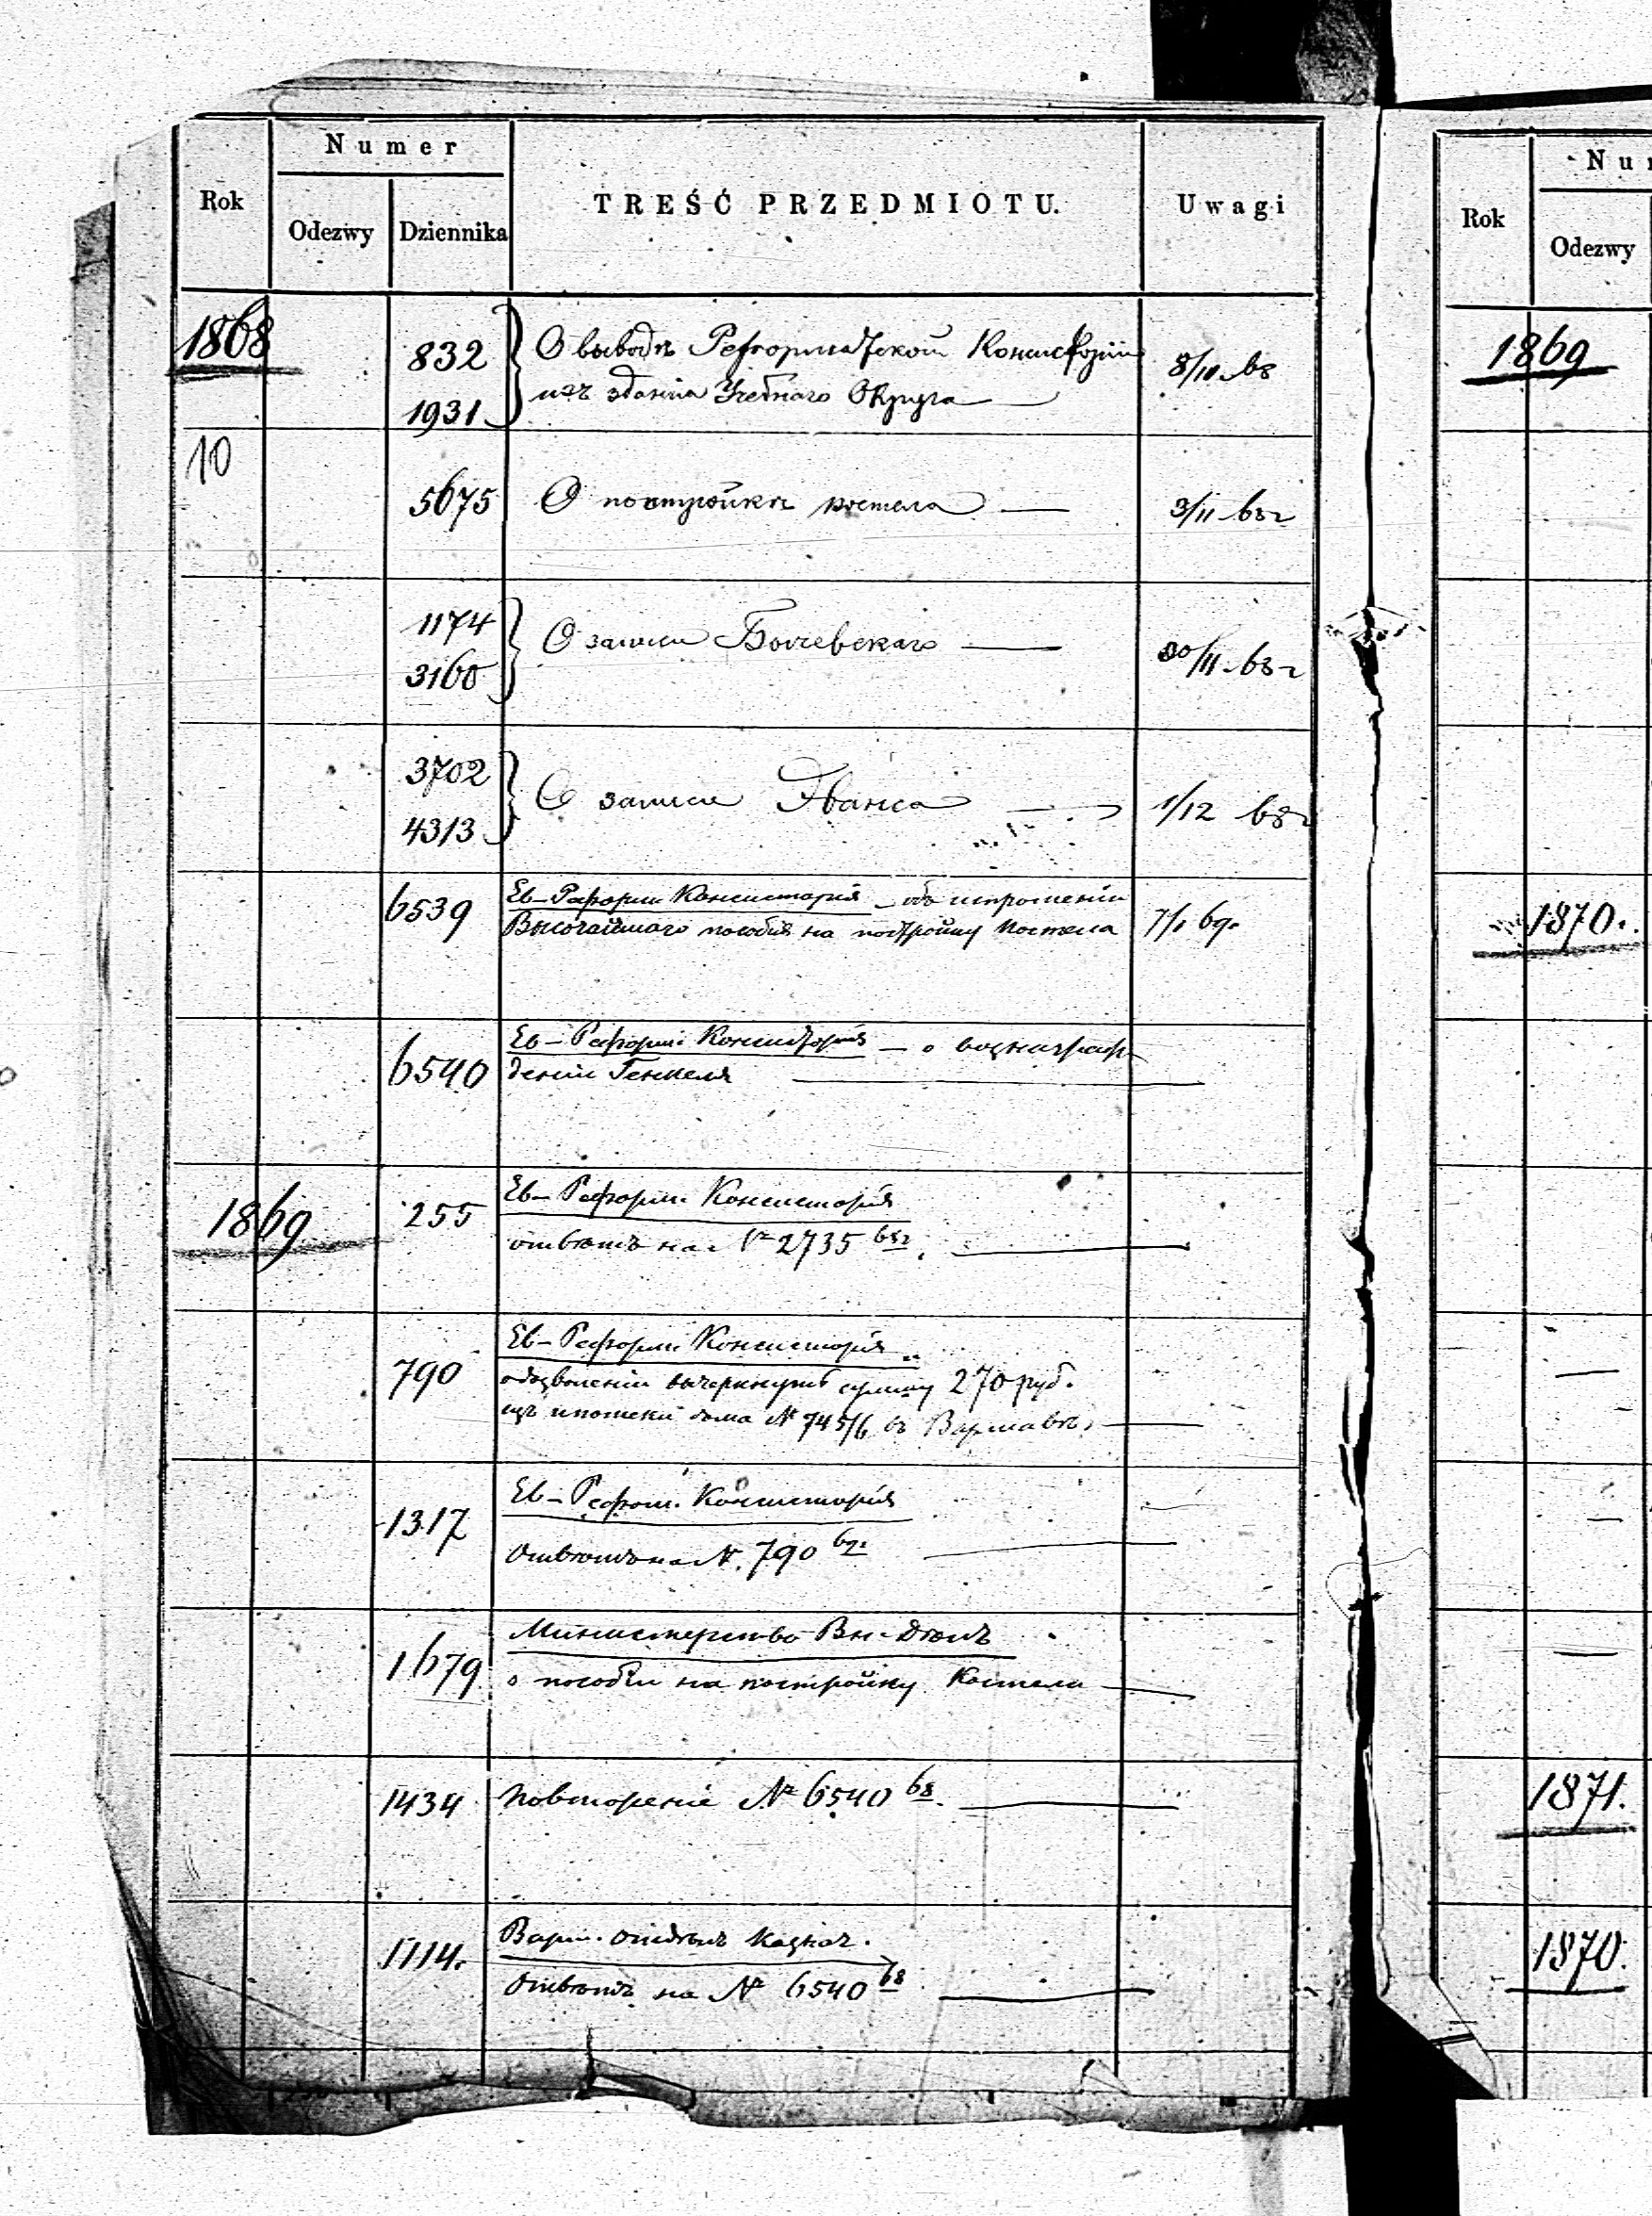 Numer
Rok
Odezwy
Dziennika
TREŚĆ PRZEDMIOTU.
Uwagi
1868
832
1931
О выводѣ Реформатской Консисторіи
изъ зданія Учебнаго Округа
8/10 68
10
5675
О постройкѣ костела
3/11 68 г
1174
3160
О записи
30/11 68 г
3702
4313
О записи Эванса
1/12 68 г
6539
Ев-Реформ Консисторія - объ испрошеніи
Высочайшаго пособія на постройку костела
7/1 69.
6540
Ев-Реформ Консисторія - о вознаграж-
деніи Генкеля
1869
255
Ев-Реформ Консисторія
отвѣтъ на № 2735 68 г
790
Ев-Реформ Консисторія
о дозволеніи вычеркнуть сумму 270 руб.
изъ ипотеки дома № 745/6 въ Варшавѣ
1317
Ев-Реформ. Консисторія
Отвѣтъ на №. 790 69.
1679
Министерство Вн-Дѣлъ
о пособіи на постройку Костела
1434
Повторение № 6540 68.
1114.
Варш. Казнач.
Отвѣтъ на № 6540 68
Rok
Odezwy
1869
1870.
1871.
1870.